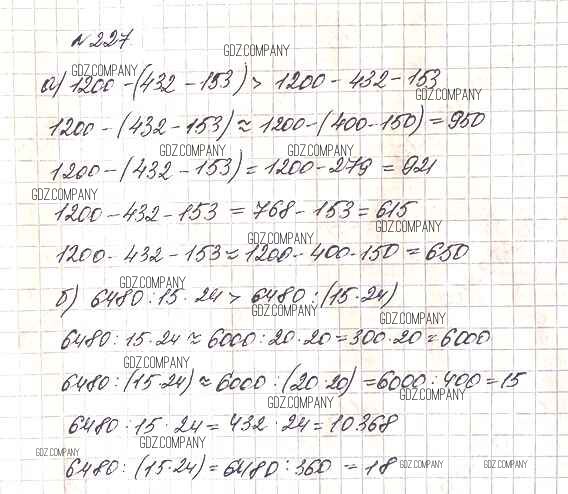 №227
GDZ.COMPANY
GDZ.COMPANY
а) 1200 - (432 - 153) > 1200 - 432 - 153
GDZ.COMPANY
1200 - (432 - 153) ≈ 1200 - (400 - 150) = 950
GDZ.COMPANY GDZ.COMPANY
1200 - (432 - 153) = 1200 - 279 = 921
GDZ.COMPANY
1200 - 432 - 153 = 768 - 153 = 615
GDZ.COMPANY
GDZ.COMPANY
1200 - 432 - 153 ≈ 1200 - 400 - 150 = 650
GDZ.COMPANY
б) 6480 : 15 · 24 > 6480 : (15 · 24)
GDZ.COMPANY GDZ.COMPANY
6480 : 15 · 24 ≈ 6000 : 20 · 20 = 300 · 20 = 6000
GDZ.COMPANY
6480 : (15 · 24) ≈ 6000 : (20 · 20) = 6000 : 400 = 15
GDZ.COMPANY GDZ.COMPANY
6480 : 15 · 24 = 432 · 24 = 10368
GDZ.COMPANY
GDZ.COMPANY
6480 : (15 · 24) = 6480 : 360 = 18
GDZ.COMPANY GDZ.COMPANY